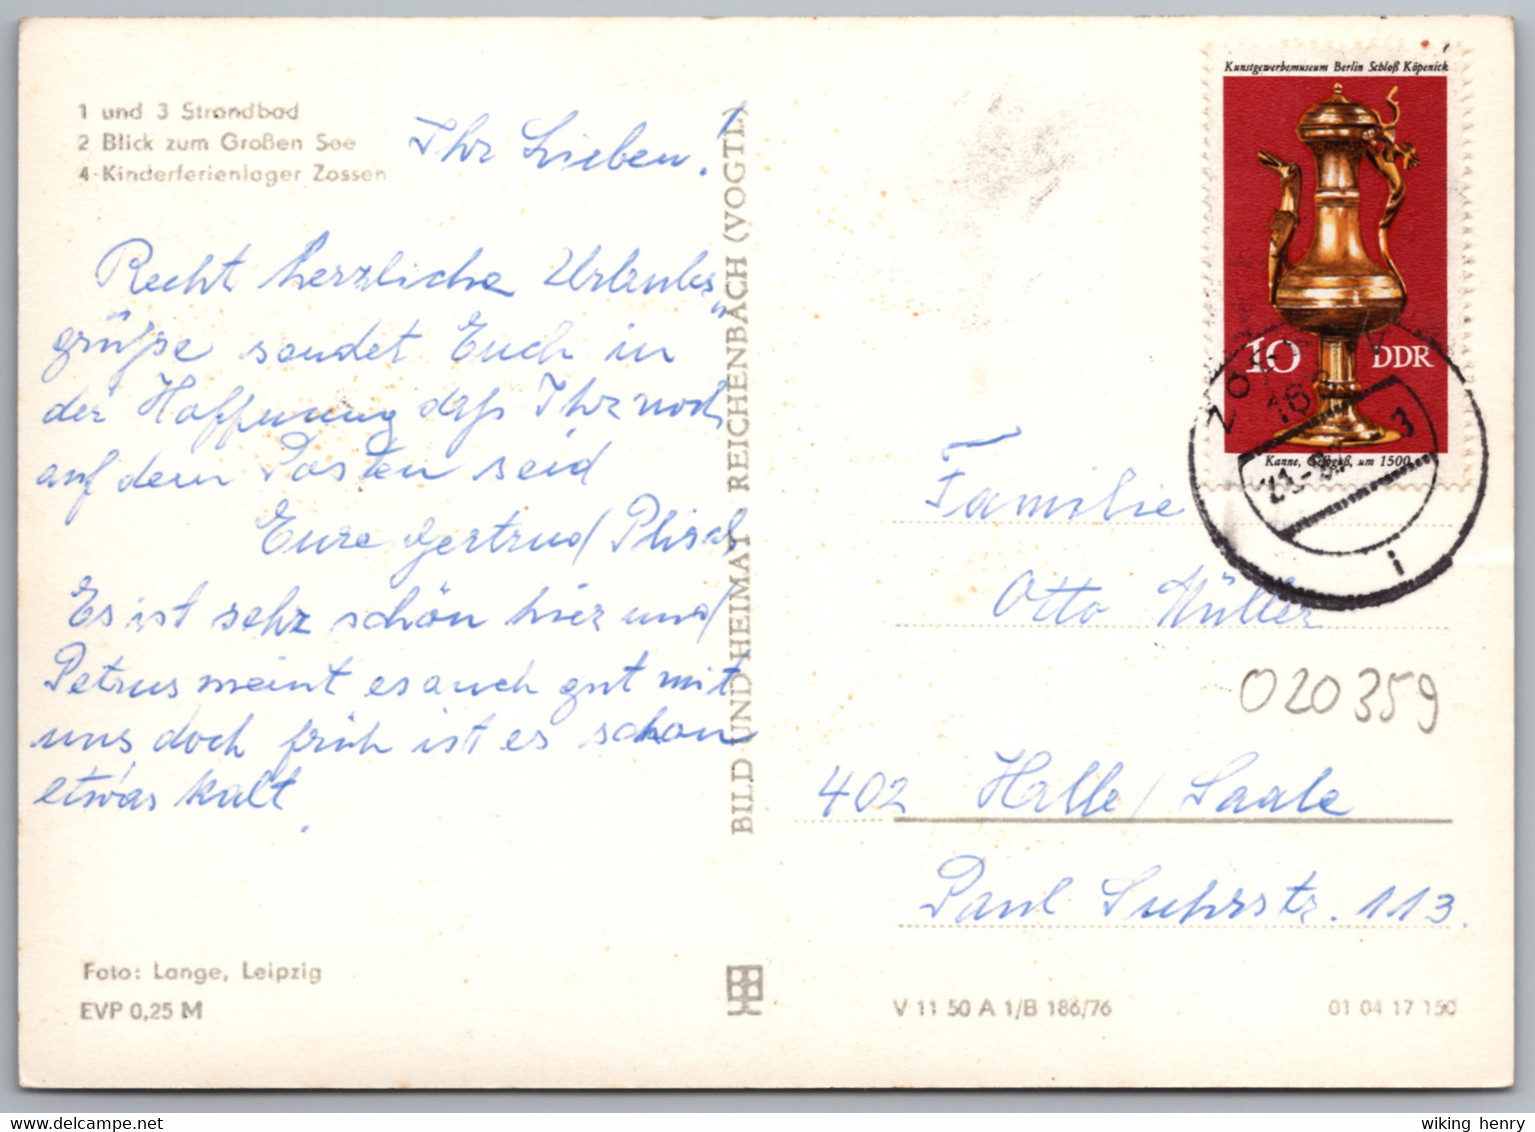 1 und 3 Strandbad
2 Blick zum Großen See
4 Kinderferienlager Zossen
Ihr Lieben!
Recht herzliche Urlaubs
grüße sendet Euch in
der Hoffnung daß Ihr noch
auf dem Posten seid
Eure Gertrud
Es ist sehr schön hier und
Petrus meint es auch gut mit
uns, doch früh ist es schon
etwas kalt.
Foto: Lange, Leipzig
EVP 0,25 M
BILD UND HEIMAT REICHENBACH (VOGTL)
Kunstgewerbemuseum Berlin Schloß Köpenick
10 DDR
Kanne, Gelbguß, um 1500
Familie
Otto Müller
020359
402 Halle / Saale
Paul Suhrstr. 113.
V 11 50 A 1/B 186/76
01 04 17 150
www.delcampe.net
wiking henry